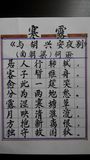 寒露
《与胡兴安夜别》
(南朝梁)何逊
居人行转轼
客子暂维舟
念此一筵笑
分为两地愁
露湿寒塘草
月映清淮流
方抱新离恨
独守故园秋